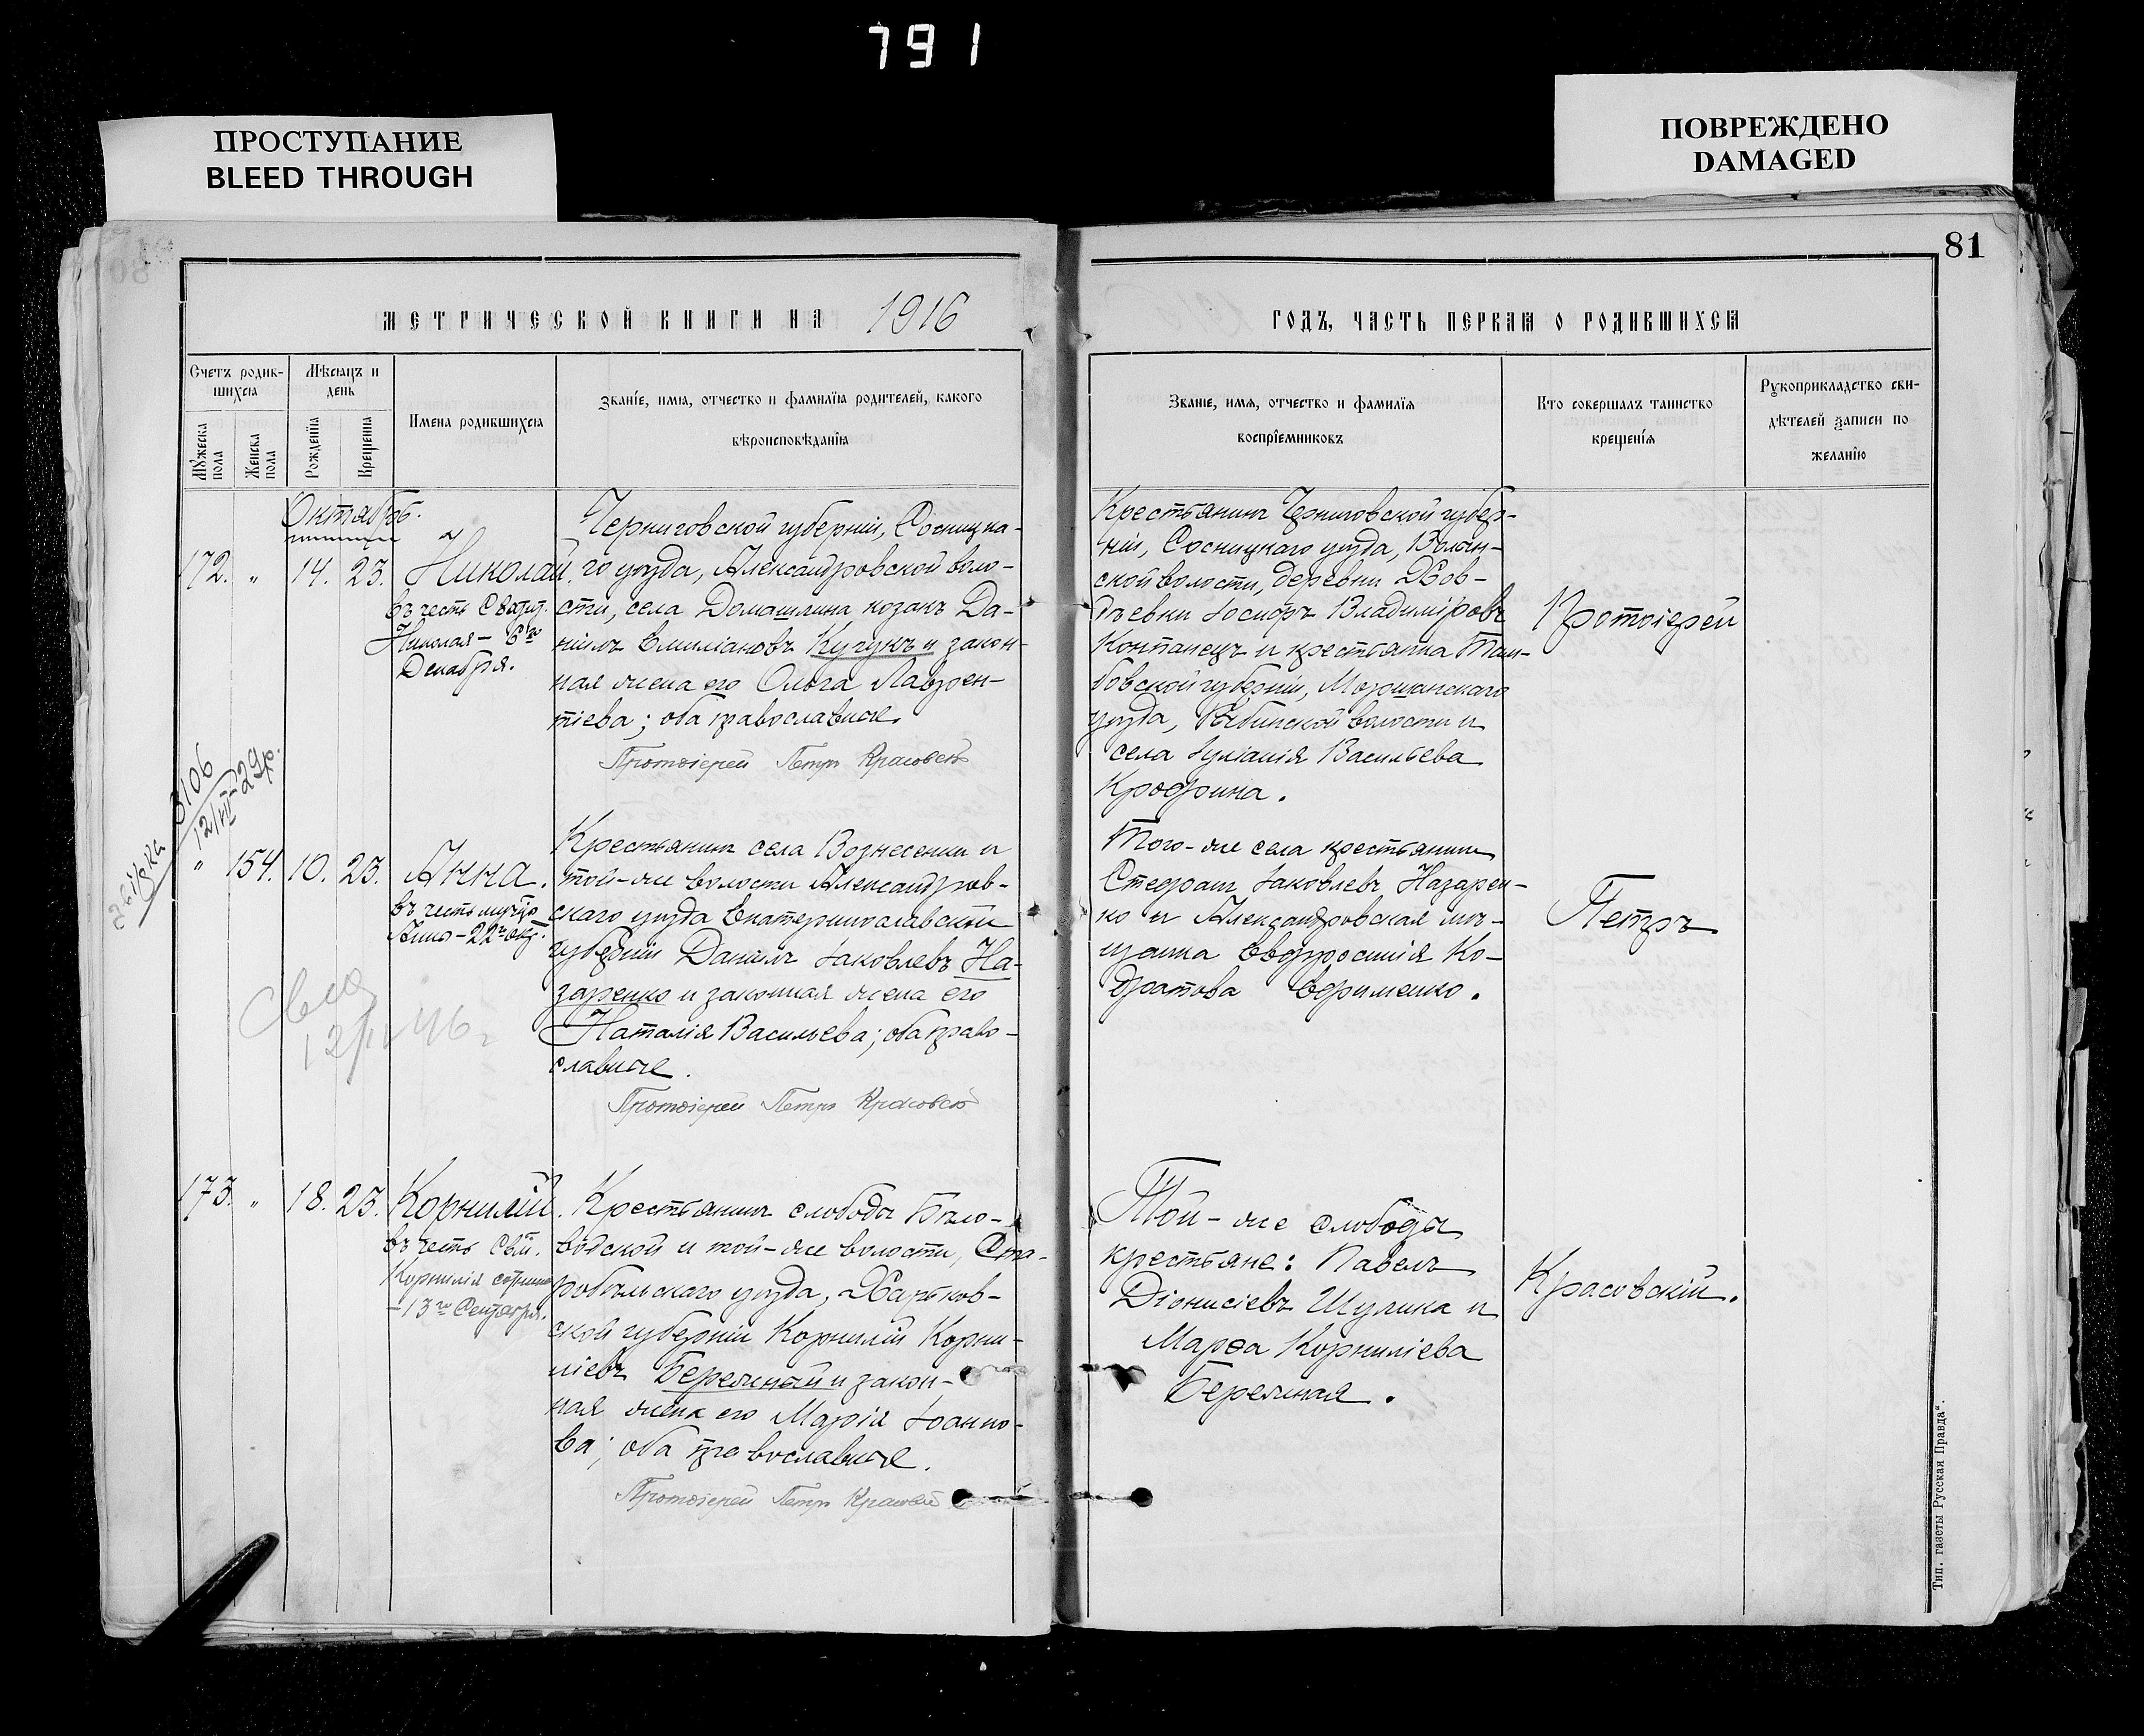 791
ПРОСТУПАНИЕ
BLEED THROUGH
ПОВРЕЖДЕНО
DAMAGED
81
МЕТРИЧЕСКОЙ КНИГИ НА 1916
ГОДЪ, ЧАСТЬ ПЕРВАЯ О РОДИВШИХСЯ
Счетъ родив-
шихся
Мужеска
пола
Женска
пола
Мѣсяцъ и
день
Рожденія
Крещенія
Имена родившихся
Званіе, имя, отчество и фамилія родителей, какого
вѣроисповѣданія
Званіе, имя, отчество и фамилія
воспріемниковъ
Кто совершалъ таинство
крещенія
Рукоприкладство сви-
дѣтелей записи по
желанію
Октябрь.
172. " 14. 23. Николай.
въ честь Святит.
Николая – 6го
Декабря.
Черниговской губерніи, Сосницка-
го уѣзда, Александровской воло-
сти, села Домашлина козакъ Да-
ніилъ Емиліановъ Кугукъ и закон-
ная жена его Ольга Лаврен-
тіева; оба православные.
Протоіерей Петръ Красовскій
Крестьянинъ Черниговской губер-
ніи, Сосницкаго уѣзда, Волын-
ской волости, деревни Хов-
дѣевки Іосифъ Владиміровъ
Компанецъ и крестьянка Там-
бовской губерніи, Моршанскаго
уѣзда, Рыбинской волости и
села Іуліанія Васильева
Протоіерей
3106
12/VII 29г.
" 154. 10. 23. Анна.
въ честь муч-цы
Анны – 22го окт.
Крестьянинъ села Вознесенки и
той-же волости Александров-
скаго уѣзда Екатеринославской
губерніи Даніилъ Іаковлевъ На-
заренко и законная жена его
Наталія Васильева; оба право-
славные.
Протоіерей Петръ Красовскій
Того-же села крестьянинъ
Стефанъ Іаковлевъ Назарен-
ко и Александровская мѣ-
щанка Евфросинія Ко-
дратова Ефименко.
Петръ
173. " 18. 23. Корнилій.
въ честь Свят.
Корнилія сотника
– 13го Сентября.
Крестьянинъ слободы Бѣло-
водской и той-же волости, Ста-
робѣльскаго уѣзда, Харьков-
ской губерніи Корнилій Корни-
ліевъ Бережный и закон-
ная жена его Марія Іоанно-
ва; оба православные.
Протоіерей Петръ Красовскій
Той-же слободы
крестьяне: Павелъ
Діонисіевъ Шулика и
Марѳа Корниліева
Бережная.
Красовскій.
Тип. газеты „Русская Правда“.